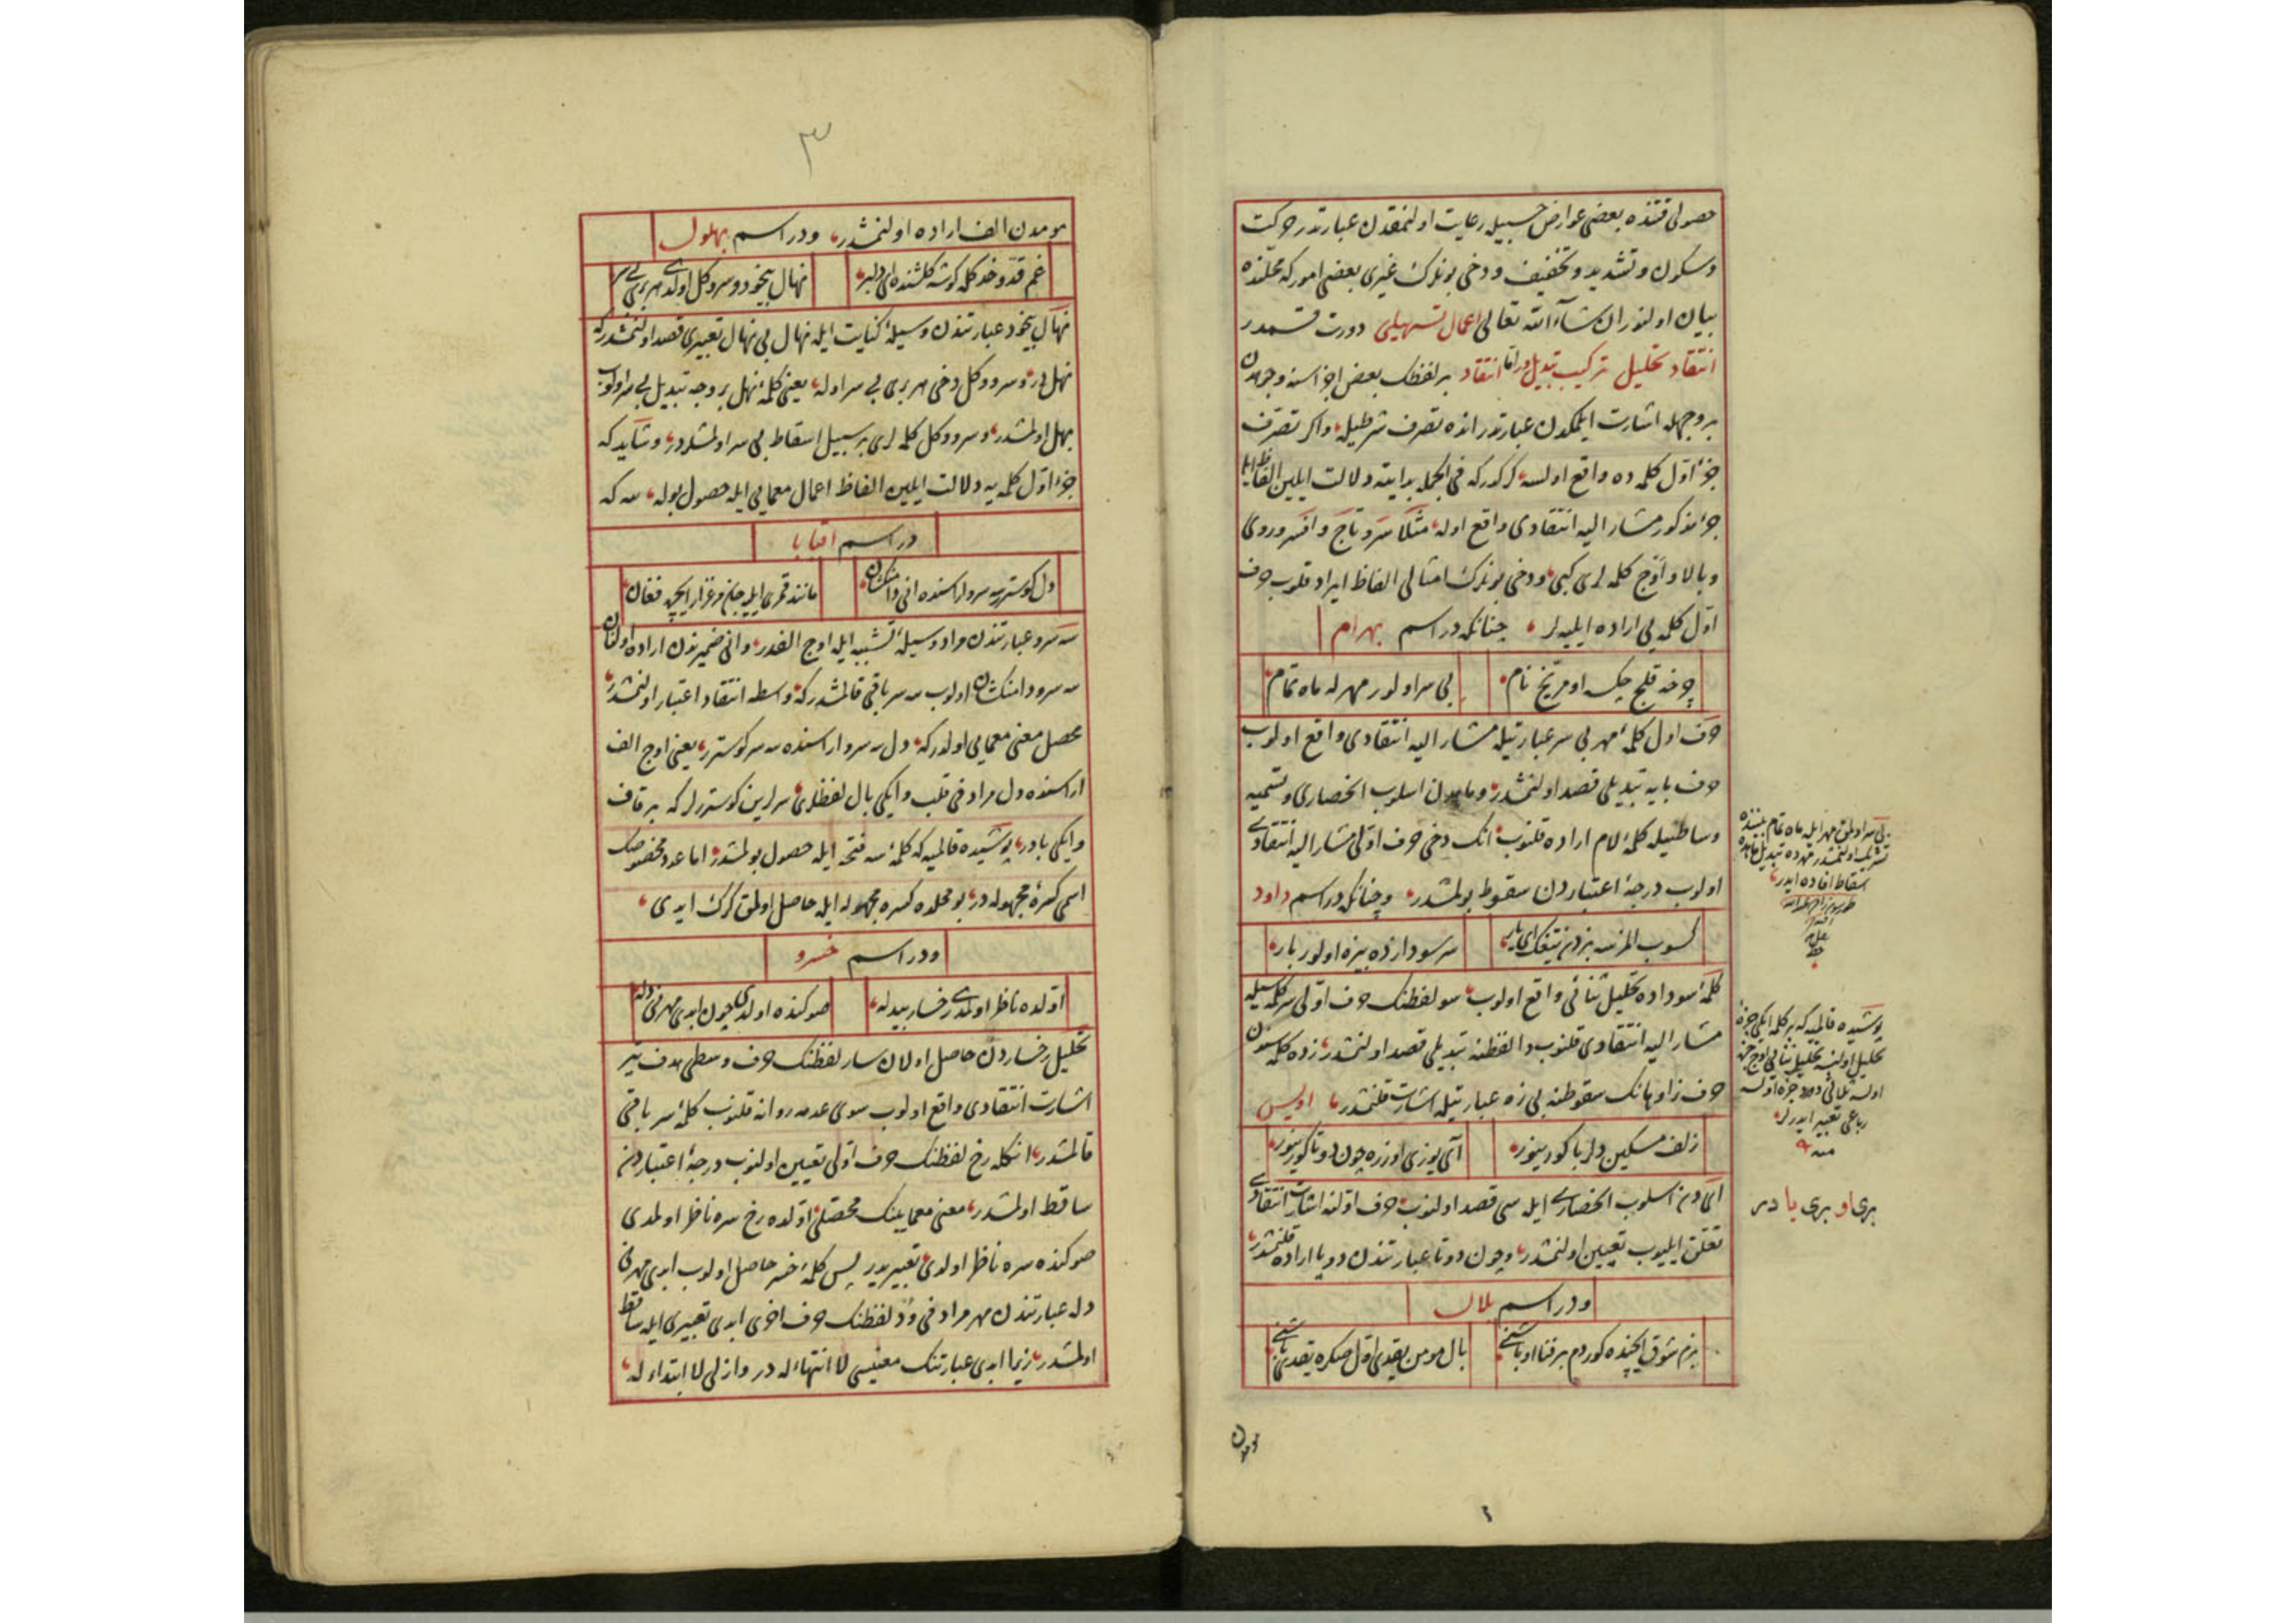 حصولی قتنده بعضی عوارض حسبیله رعایت اولنمقدن عبارتدر حرکت
وسکون وتشدید وتخفیف ودخی بونلرك غیری بعضی امور که محلنده
بیان اولنور ان شاء الله تعالی اعمال تسهیلی دورت قسمدر
انتقاد تحلیل ترکیب تبدیل واما انتقاد بر لفظك بعض اجزاسنه وجوهدن
بر وجهله اشارت ایلمکدن عبارتدر انده تصرف شرطیله واکر تصرف
جزء اول کلمه ده واقع اولسه کرکدرکه فی الجمله بدایته دلالت ایلین الفاظ ایله
جزء مذکور مشار الیه انتقادی واقع اوله مثلا سر وتاج وافسر وروی
وبالا واوج کلمه لری کبی ودخی بونلرك امثالی الفاظ ایراد قلنوب حرف
اول کلمه یی اراده ایلیه لر چنانکه در اسم بهرام
چونه قلیج چکسه او مریخ نام
بی سر اولور مهرله ماه تمام
حرف اول کلمه مهر بی سر عبارتیله مشار الیه انتقادی واقع اولوب
حرف بایه تبدیلی قصد اولنمشدر وماهدن اسلوب انحصاری وتسمیه
وساطتیله کلمه لام اراده قلنوب انك دخی حرف اولی مشار الیه انتقادی
اولوب درجه اعتباردن سقوط بولمشدر وچنانکه در اسم داود
سر سودازده بیزه اولور بار
کلمه سوداده تحلیل ثنائی واقع اولوب سو لفظنك حرف اولی سر کلمه سیله
مشار الیه انتقادی قلنوب دا لفظنه تبدیلی قصد اولنمشدر زده کلمه سندن
حرف زا وهانك سقوطنه بی زه عبارتیله اشارت قلنمشدر اویس
زلف مسکین دلربا کورینور
آی یوزی اوزره چون دوتا کورینور
آی دن اسلوب انحصاری ایله سی قصد اولنوب حرف اولنه اشارت انتقادی
تعلق ایلیوب تعیین اولنمشدر وچون دوتا عبارتندن دو یا اراده قلنمشدر
ودر اسم بلال
بزم شوق ایچنده کوردم بر فنا اوباشنی
بال مومن یقدی اول صکره یقدی باشنی
مومدن
بری او بری یا در
٣
مومدن الف اراده اولنمشدر ودر اسم بهلول
غم قد وخدکله کوشه کلشنده ای دلبر
نهال بیخود وسرو وکل اولدی هر بری بی سر
نهال بیخود عبارتندن وسیله کنایت ایله نهال بی نهال تعبیری قصد اولنمشدرکه
نهل در وسرو وکل دخی هر بری بی سر اوله یعنی کلمه نهل بر وجه تبدیل بی سر اولوب
بهل اولمشدر وسرو وکل کلمه لری بر سبیل اسقاط بی سر اولمشلردر وشاید که
جزء اول کلمه یه دلالت ایلین الفاظ اعمال معمایی ایله حصول بوله سه که
در اسم اقبابا
دل کوستریر سه سرو اراسنده انی دامنکشان
مانند قمری ایلیه جان مرغزار ایچره فغان
سه سرو عبارتندن مراد وسیله تشبیه ایله اوج الفدر وانی ضمیرندن اراده اولنان
سه سرو دامنکشان اولوب سه سر باقی قالمشدرکه واسطه انتقاد اعتبار اولنمشدر
محصل معنی معمایی اولدرکه دل سه سرو اراسنده سه سر کوستریر یعنی اوج الف
اراسنده دل مرادفی قلب وایکی بال لفظلری سرلرین کوستررلر که بر قاف
وایکی بادر پوشیده قالمیه که کلمه سه فتحه ایله حصول بولمشدر اما عدد مخصوصك
اسمی کسره مجهوله در بو محلده کسره مجهوله ایله حاصل اولمق کرك ایدی
ودر اسم خسرو
اولده ناظر اولمدی رخسار بیدله
صوکنده اولدی چون ابدی مهرنی دله
تحلیل رخساردن حاصل اولان سار لفظنك حرف وسطی هدف تیر
اشارت انتقادی واقع اولوب سوی عدمه روانه قلنوب کلمه سر باقی
قالمشدر انکله رخ لفظنك حرف اولی تعیین اولنوب درجه اعتباردن
ساقط اولمشدر معنی معمایینك محصلی اولده رخ سره ناظر اولمدی
صوکنده سره ناظر اولدی تعبیریدر پس کلمه خسر حاصل اولوب ابدی مهرنی
دله عبارتندن مهر مرادفی ود لفظنك حرف اخری ابدی تعبیری ایله ساقط
اولمشدر زیرا ابدی عبارتنك معنیسی لا انتهاء له در وازلی لا ابتداء له